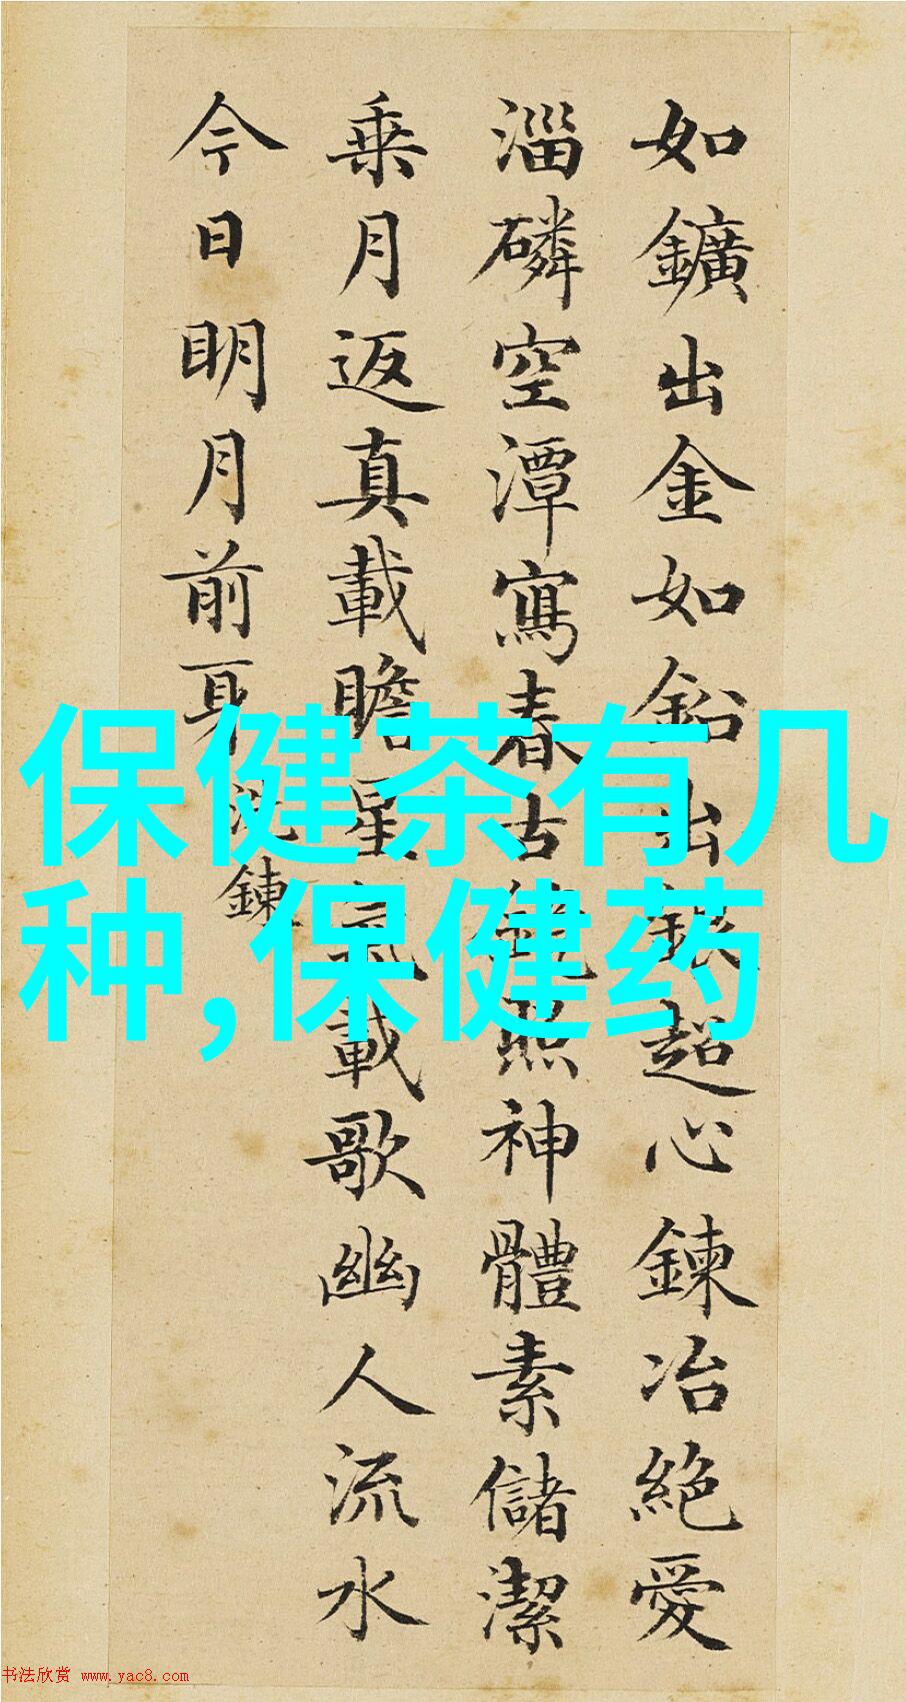 如鑛出金如鉛出銀超心鍊冶絶愛
淄磷空潭寫春古鏡照神體素儲潔
乗月返真載瞻星氣載歌幽人流水
今日明月前身
洗鍊
保健茶有几
种,保健药
书法欣赏 www.yac8.com